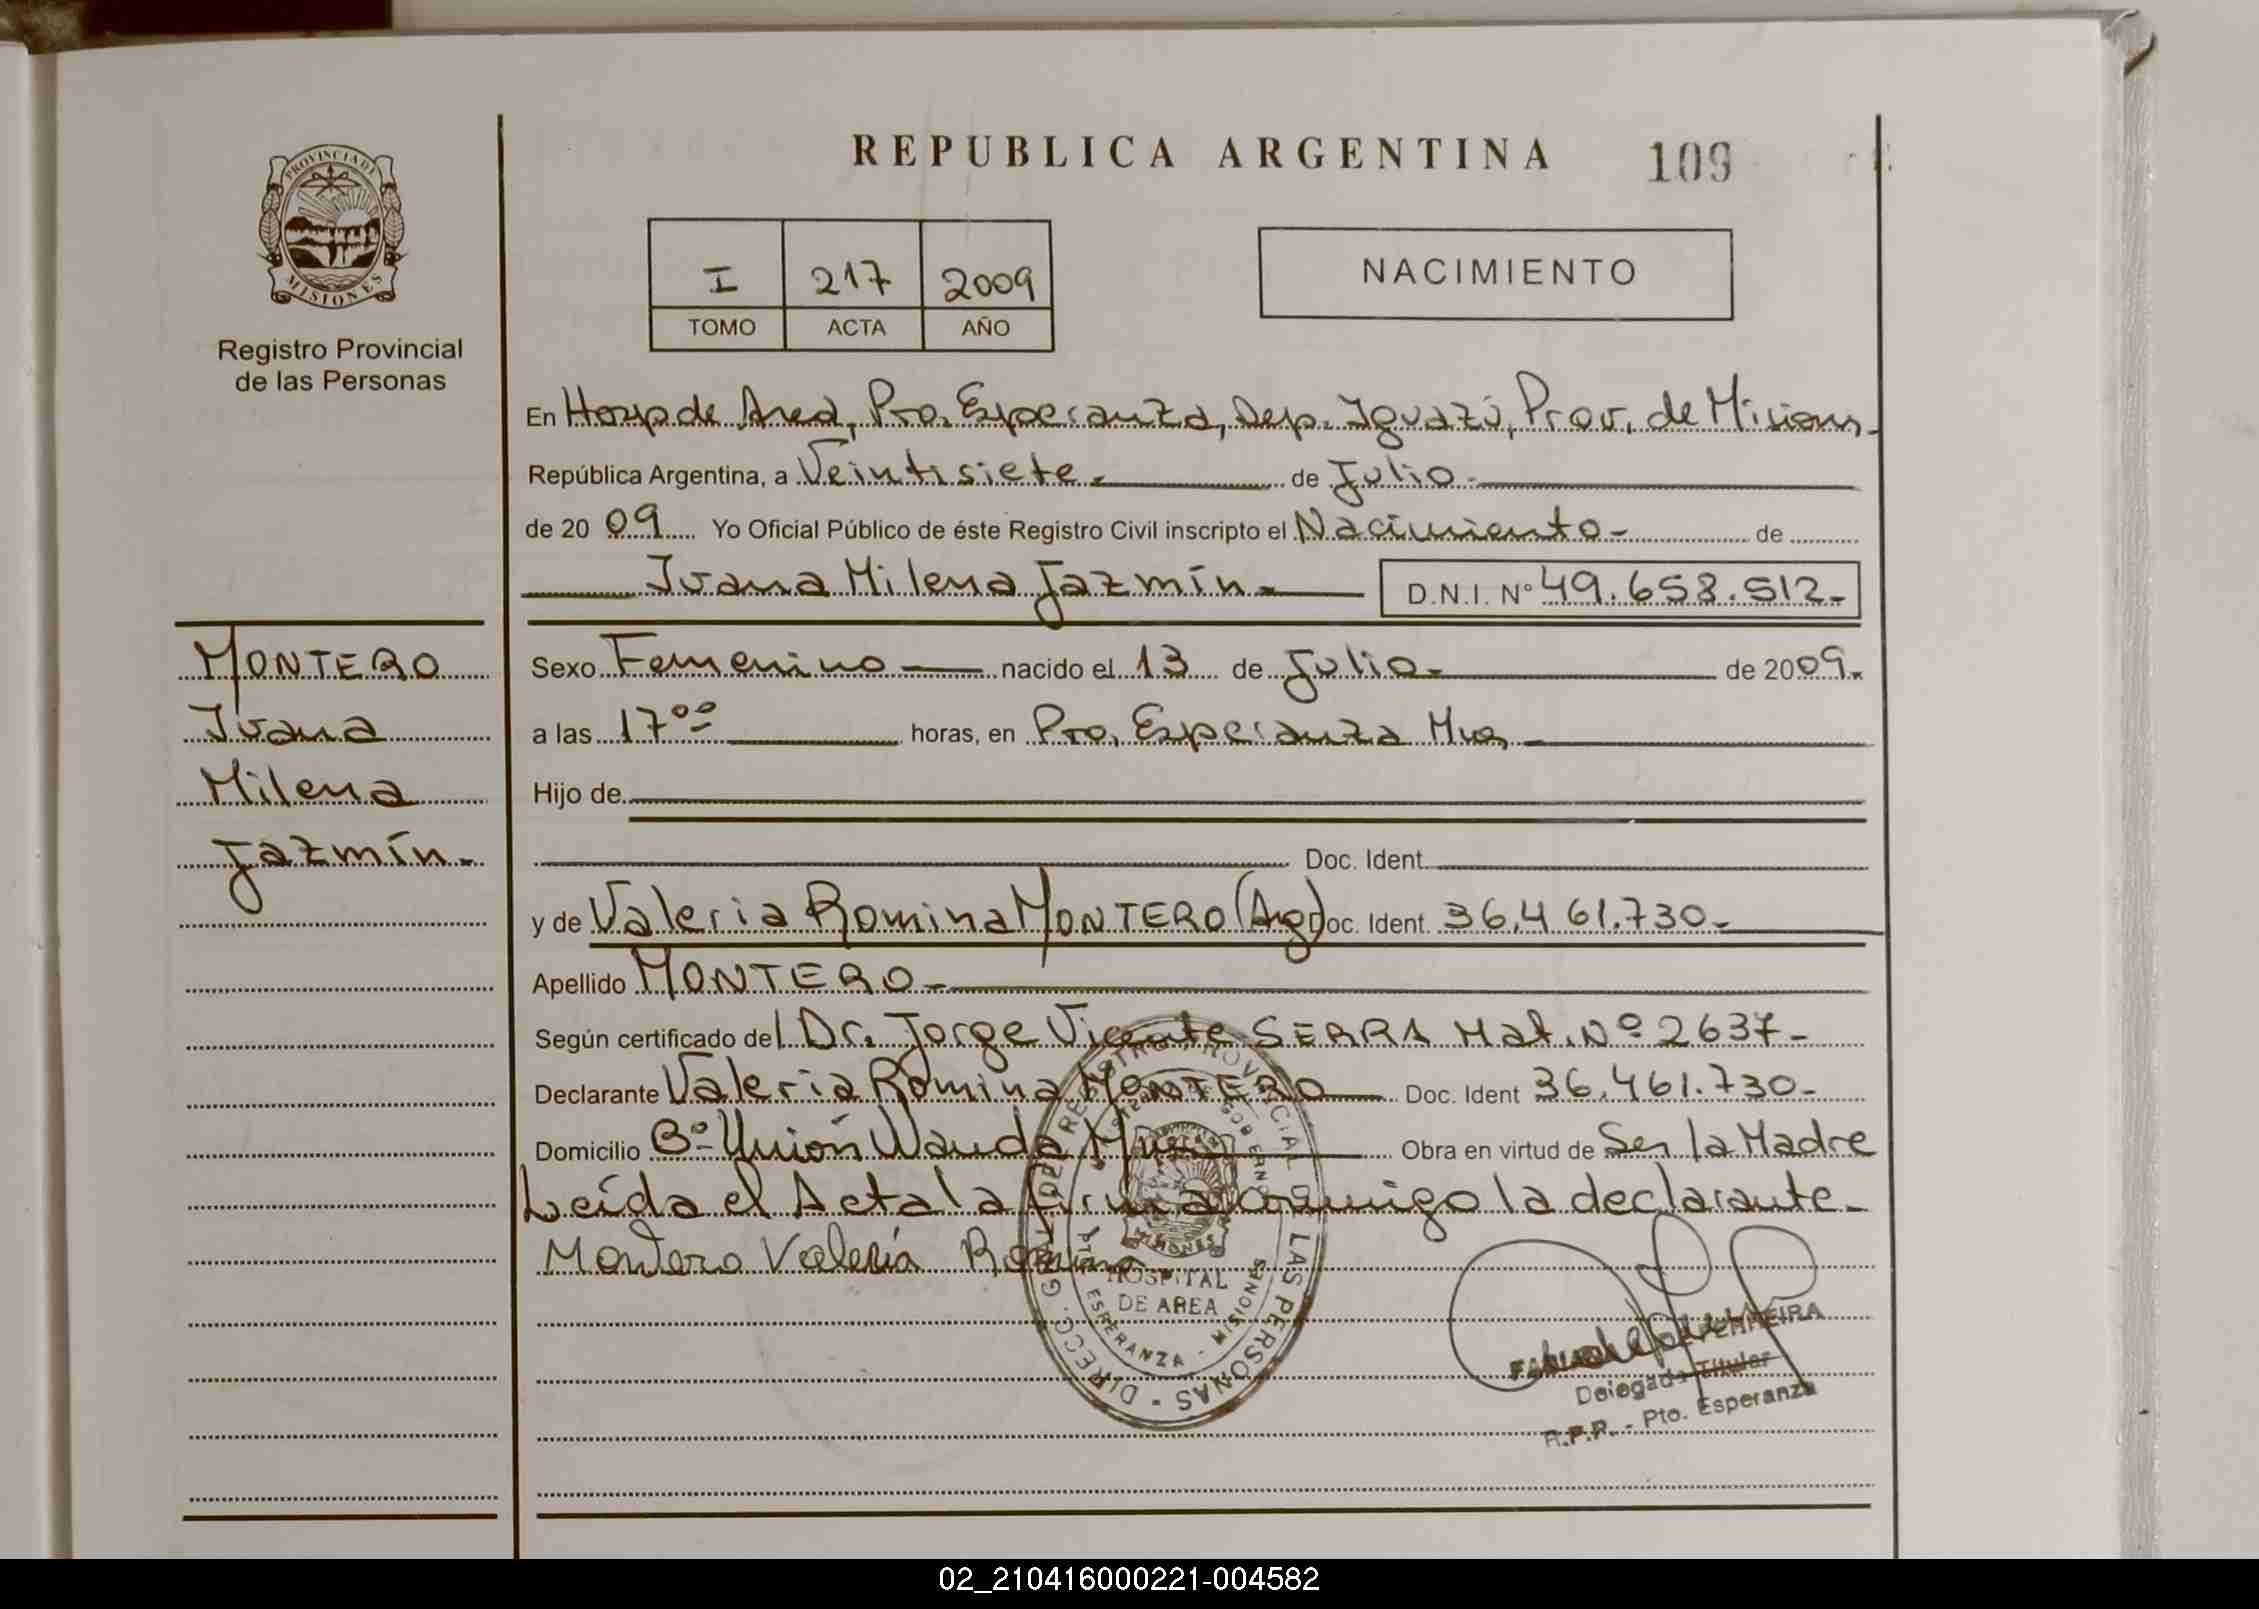 REPUBLICA ARGENTINA 109
PROVINCIA DE
MISIONES
Registro Provincial
de las Personas
I 217 2009
TOMO ACTA AÑO
NACIMIENTO
En Hosp de Area, Pto. Esperanza, Dep. Iguazú, Prov. de Misiones
República Argentina, a Veintisiete.- de Julio.-
de 2009 Yo Oficial Público de éste Registro Civil inscripto el Nacimiento- de
Ivana Milena Jazmín.- D.N.I. Nº 49.658.512.-
MONTERO
Ivana
Milena
Jazmín.-
Sexo Femenino nacido el 13 de Julio.- de 2009.
a las 17ºº horas, en Pto. Esperanza Mnes
Hijo de
Doc. Ident.
y de Valeria Romina MONTERO (Arg) Doc. Ident. 36.461.730.-
Apellido MONTERO.-
Según certificado del Dr. Jorge Vicente SERRA Mat. Nº 2637-
Declarante Valeria Romina MONTERO Doc. Ident 36.461.730.-
Domicilio Bº Unión Wanda Mnes Obra en virtud de Ser la Madre
Leída el Acta la firma conmigo la declarante.-
Montero Valeria Romina
DIRECC. GRAL. DE REGISTRO PROVINCIAL DE LAS PERSONAS
MISIONES
HOSPITAL
DE AREA
PTO. ESPERANZA - MISIONES
FERREIRA
Delegado Titular
R.P.P. - Pto. Esperanza
02_210416000221-004582